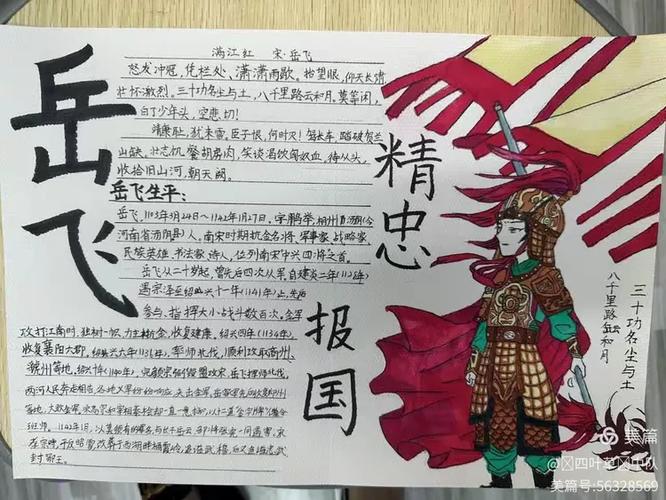 岳飞
满江红 宋·岳飞
怒发冲冠，凭栏处、潇潇雨歇。抬望眼，仰天长啸
壮怀激烈。三十功名尘与土，八千里路云和月。莫等闲，
白了少年头，空悲切！
靖康耻，犹未雪，臣子恨，何时灭！驾长车，踏破贺兰
山缺。壮志饥餐胡虏肉，笑谈渴饮匈奴血，待从头，
收拾旧山河，朝天阙。
岳飞生平：
岳飞，1103年3月24日～1142年1月27日，字鹏举，相州汤阴（今
河南省汤阴县）人，南宋时期抗金名将、军事家、战略家、
民族英雄、书法家、诗人，位列南宋中兴四将之首。
岳飞从二十岁起，曾先后四次从军，自建炎二年（1128年）
遇宗泽至绍兴十一年（1141年）止，先后
参与、指挥大小战斗数百次。金军
攻打江南时，独树一帜，力主抗金，收复建康。绍兴四年（1134年），
收复襄阳六郡，绍兴六年（1136年），率师北伐，顺利攻取商州、
虢州等地。绍兴十年（1140年），完颜宗弼毁盟攻宋，岳飞挥师北伐，
两河人民奔走相告，各地义军纷纷响应，夹击金军，岳家军先后收复郑州
等地，
班师。1142年1月，以莫须有的
封鄂王。
精忠
报国
三十功名尘与土
八千里路云和月
美篇
@四叶草中队
美篇号:56328569